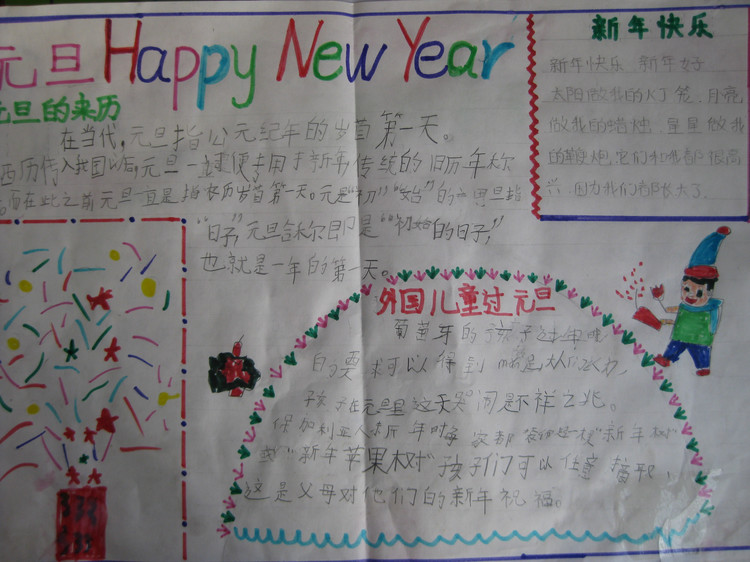 元旦 Happy New Year
元旦的来历
在当代,元旦指公元纪年的岁首第一天。
西历传入我国以后,元旦一词便专用于新年,传统的旧历年称
而在此之前元旦一直是指农历岁首第一天。元是"初""始"的意思旦指
"日子",元旦合称即是"初始的日子",
也就是一年的第一天。
新年快乐
新年快乐 新年好
太阳做我的灯笼,月亮
做我的蜡烛,星星做我
的鞭炮,它们和我都很高
兴,因为我们都长大了.
外国儿童过元旦
葡萄牙的孩子过年时
的要求可以得到
孩子在元旦这天哭闹是不祥之兆。
保加利亚人 年时每家都 "新年树"
或"新年苹果树"孩子们可以任意摘取,
这是父母对他们的新年祝福。